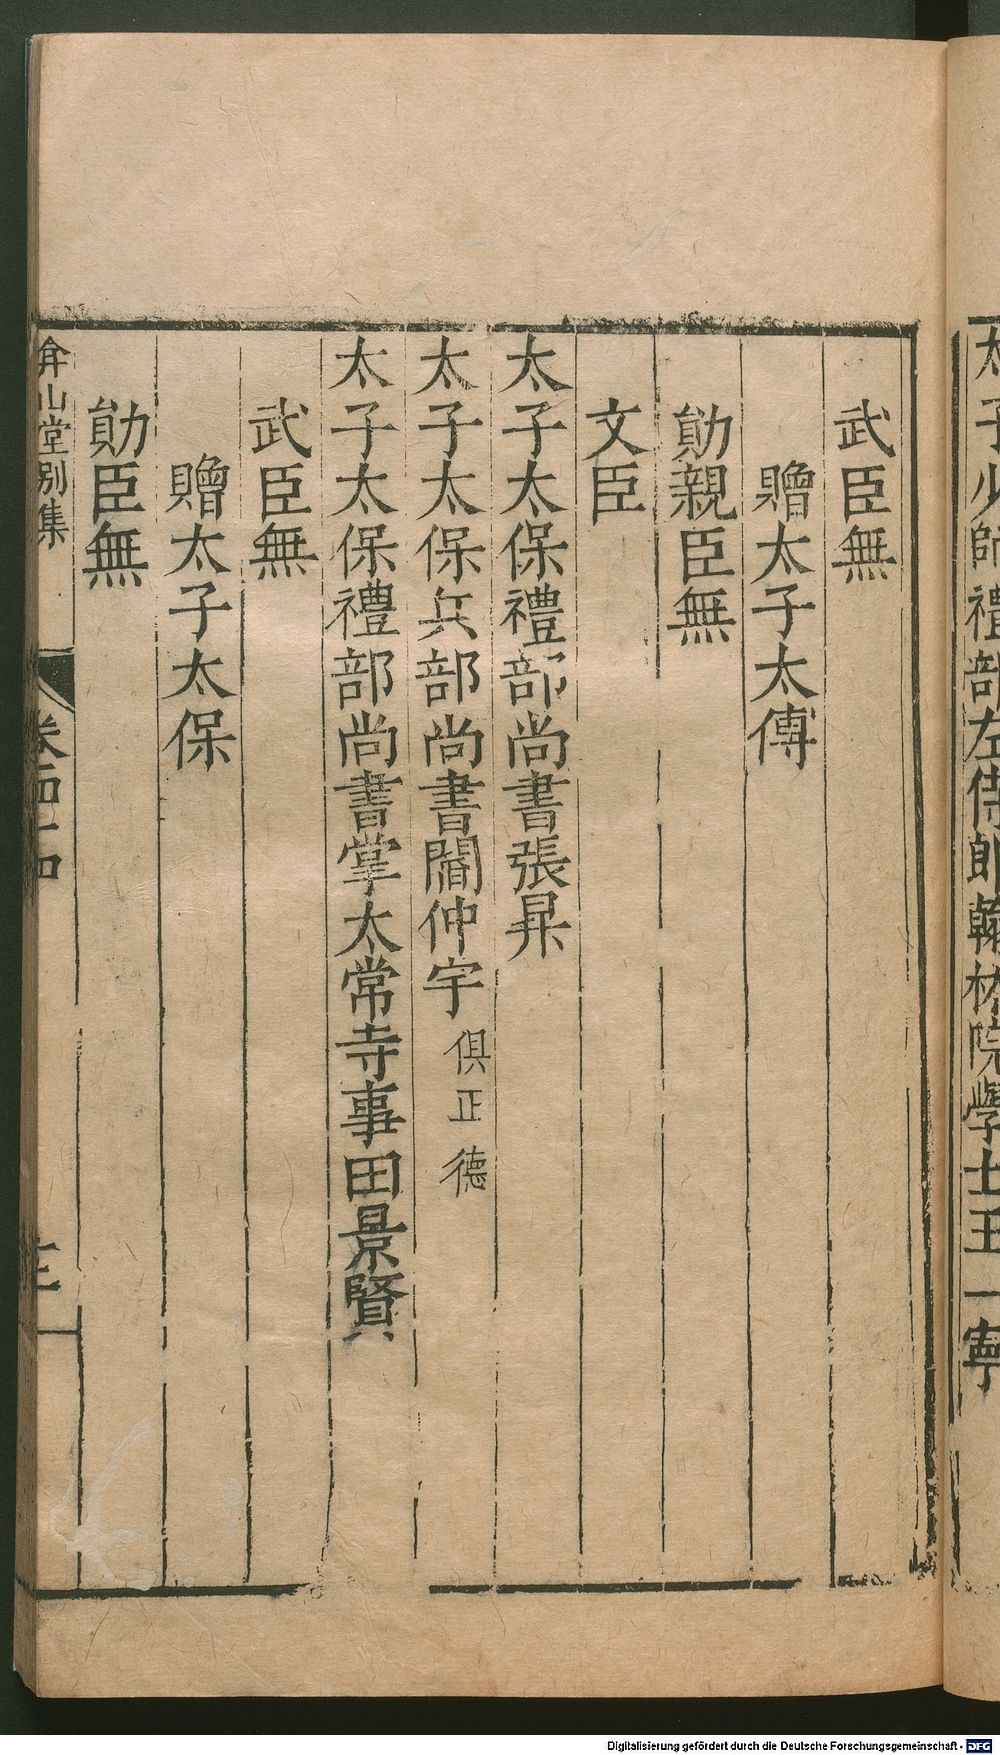 太子少師禮部左侍郎翰林院學士王一寧
武臣無
贈太子太傅
勛親臣無
文臣
太子太保禮部尚書張昇
太子太保兵部尚書閻仲宇 俱正德
太子太保禮部尚書掌太常寺事田景賢
武臣無
贈太子太保
勛臣無
弇山堂別集
Digitalisierung gefördert durch die Deutsche Forschungsgemeinschaft - DFG